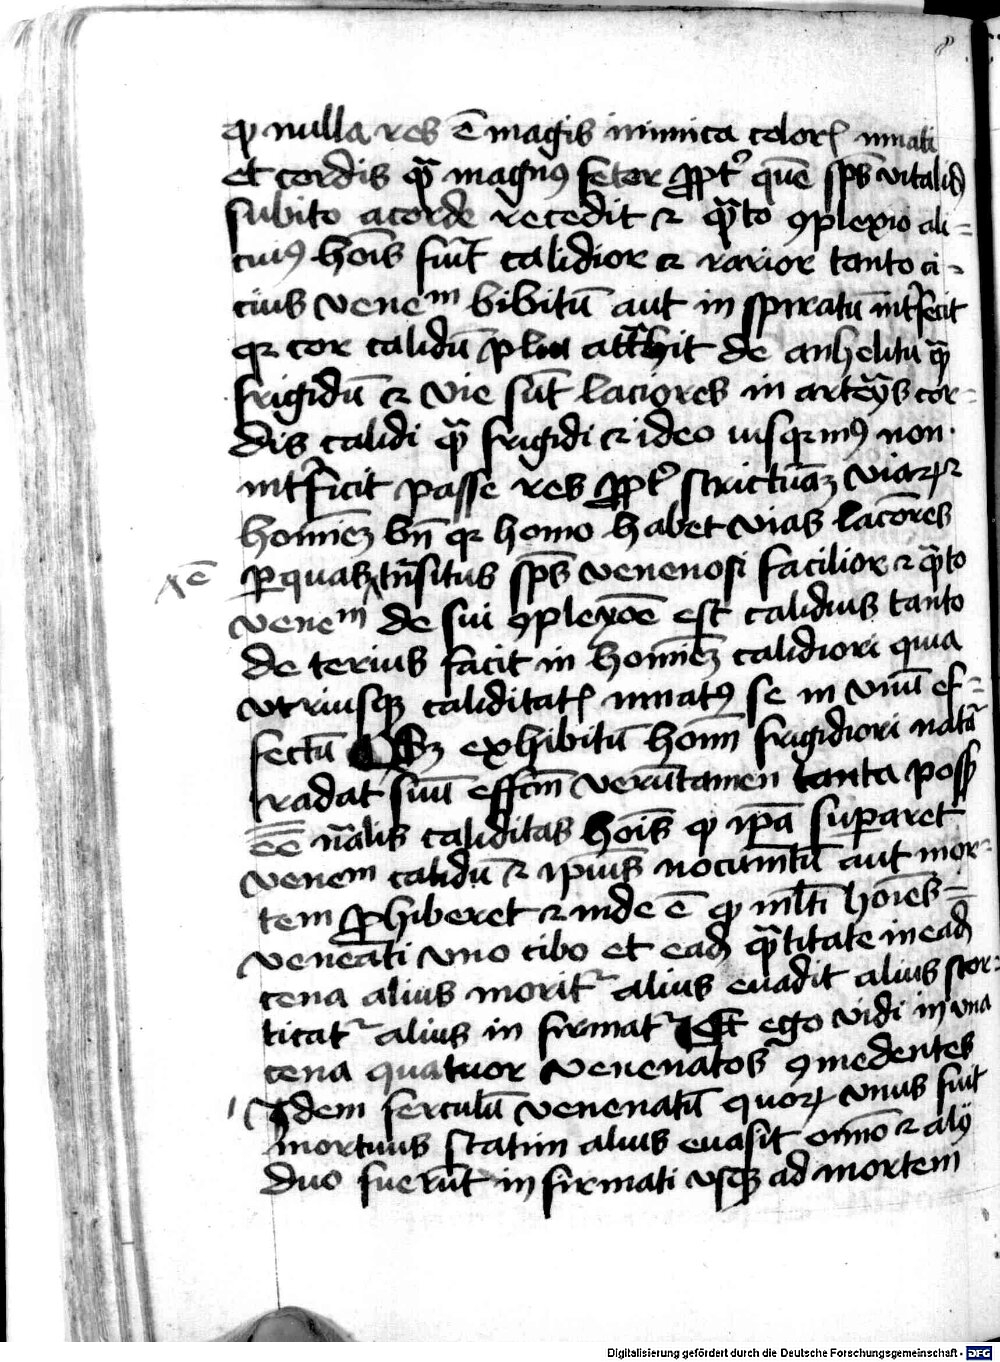 ꝙ nulla res ē magis inimica calorꝭ innati
et cordis qᷓ magnꝰ fetor ꝓpt͛ quē sp̄s vitalis
subito acorde recedit ⁊ qᷓto ꝯplexio ali=
cuiꝰ hoīs fūit calidior ⁊ rarior tanto ci=
cius veneᵐ bibitū aut in spiratū int͛ficit
qꝛ cor calidū plus att̃hit de anhelitu qᷓ
frigidū ⁊ vie sūt laciores in arterijs cor=
dis calidi qᷓ frigidi ⁊ ideo non
int͛ficit passe res ꝓpt͛ strictur̃aꝫ viaꝝ
hoīneꝫ bn̄ qꝛ homo habet vias lacōres
xē
ꝑ quas tn̄situs sp̄s venenosi facilior ⁊ qᷓto
veneᵐ de sui ꝯplexōe est calidius tanto
de terius facit in hoīneꝫ calidiori quia
vtriusqꝫ caliditatꝭ se in vnū ef=
fectū Sꝫ exhibitū hoīni frigidiori
radat suū effcm̄ verūtamen tanta possꝫ
ēē nãlis caliditas hoīs ꝙ ip̄a suꝑaret
veneᵐ calidū ⁊ ip̄ius nocumētū aut mor=
tem ꝓhiberet ⁊ inde ē ꝙ ml̄ti hoīes=
veneāti vno cibo et eadꝫ qᷓtitate in eadꝫ
cena alius moritᷣ alius euadit alius scor=
ticatᷣ alius in firmatᷣ Et ego vidi in vna
cena quatuor venenatos ꝯmedentes
Idem ferculū venenatū quoꝝ vnus fuit
mortuus statim alius euasit om̄io ⁊ alij
duo fuerūt in firmati vsqꝫ ad mortem
Digitalisierung gefördert durch die Deutsche Forschungsgemeinschaft - DFG